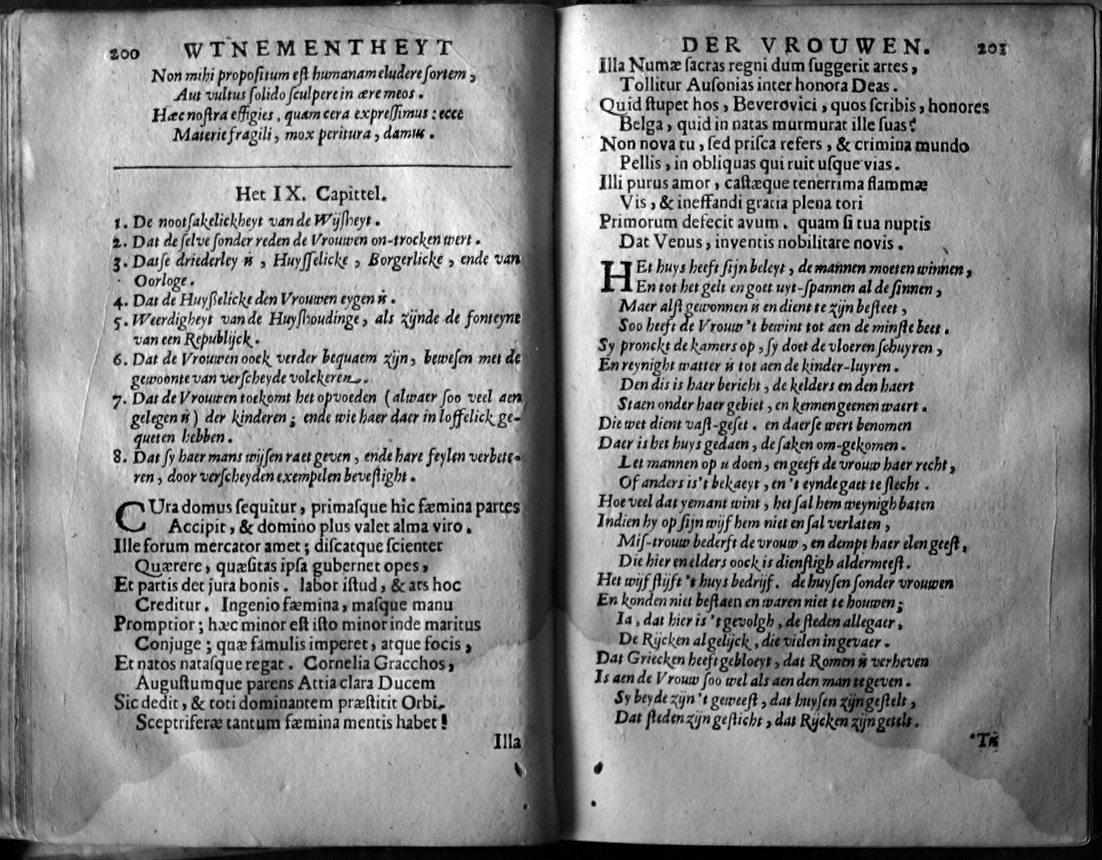 200 WTNEMENTHEYT
Non mihi propositum est humanam eludere sortem,
Aut vultus solido sculpere in ære meos.
Hæc nostra effigies, quam cera expressimus: ecce
Materie fragili, mox peritura, damus.
Het IX. Capittel.
1. De nootsakelickheyt van de Wijsheyt.
2. Dat de selve sonder reden de Vrouwen on-trocken wert.
3. Datse driederley is, Huysselicke, Borgerlicke, ende van
Oorloge.
4. Dat de Huyßelicke den Vrouwen eygen is.
5. Weerdigheyt van de Huyshoudinge, als zijnde de fonteyne
van een Republijck.
6. Dat de Vrouwen oock verder bequaem zijn, bewesen met de
gewoonte van verscheyde volckeren.
7. Dat de Vrouwen toekomt het opvoeden (alwaer soo veel aen
gelegen is) der kinderen; ende wie haer daer in loffelick ge-
queten hebben.
8. Dat sy haer mans wijsen raet geven, ende hare feylen verbete-
ren, door verscheyden exempelen bevestight.
CUra domus sequitur, primasque hîc fæmina partes
Accipit, & domino plus valet alma viro.
Ille forum mercator amet; discatque scienter
Quærere, quæsitas ipsa gubernet opes,
Et partis det jura bonis. labor istud, & ars hoc
Creditur. Ingenio fæmina, masque manu
Promptior; hæc minor est isto minor inde maritus
Conjuge; quæ famulis imperet, atque focis,
Et natos natasque regat. Cornelia Gracchos,
Augustumque parens Attia clara Ducem
Sic dedit, & toti dominantem præstitit Orbi.
Sceptriferæ tantum fæmina mentis habet!
Illa
DER VROUWEN. 201
Illa Numæ sacras regni dum suggerit artes,
Tollitur Ausonias inter honora Deas.
Quid stupet hos, Beverovici, quos scribis, honores
Belga, quid in natas murmurat ille suas?
Non nova tu, sed prisca refers, & crimina mundo
Pellis, in obliquas qui ruit usque vias.
Illi purus amor, castæque tenerrima flammæ
Vis, & ineffandi gratia plena tori
Primorum defecit avum. quam si tua nuptis
Dat Venus, inventis nobilitare novis.
HEt huys heeft sijn beleyt, de mannen moeten winnen,
En tot het gelt en goet uyt-spannen al de sinnen,
Maer alst gewonnen is en dient te zijn besteet,
Soo heeft de Vrouw 't bewint tot aen de minste beet.
Sy pronckt de kamers op, sy doet de vloeren schuyren,
En reynight watter is tot aen de kinder-luyren.
Den dis is haer bericht, de kelders en den haert
Staen onder haer gebiet, en kennen geenen waert.
Die wet dient vast-geset. en daerse wert benomen
Daer is het huys gedaen, de saken om-gekomen.
Let mannen op u doen, en geeft de vrouw haer recht,
Of anders is't bekaeyt, en 't eynde gaet te slecht.
Hoe veel dat yemant wint, het sal hem weynigh baten
Indien hy op sijn wijf hem niet en sal verlaten,
Mis-trouw bederft de vrouw, en dempt haer elen geest,
Die hier en elders oock is dienstigh aldermeest.
Het wijf stijft 't huys bedrijf. de huysen sonder vrouwen
En konden niet bestaen en waren niet te houwen;
Ia, dat hier is 't gevolgh, de steden allegaer,
De Rijcken al gelijck, die vielen in gevaer.
Dat Griecken heeft gebloeyt, dat Romen is verheven
Is aen de Vrouw soo wel als aen den man te geven.
Sy beyde zijn 't geweest, dat huysen zijn gestelt,
Dat steden zijn gesticht, dat Rijcken zijn getelt.
'Tis